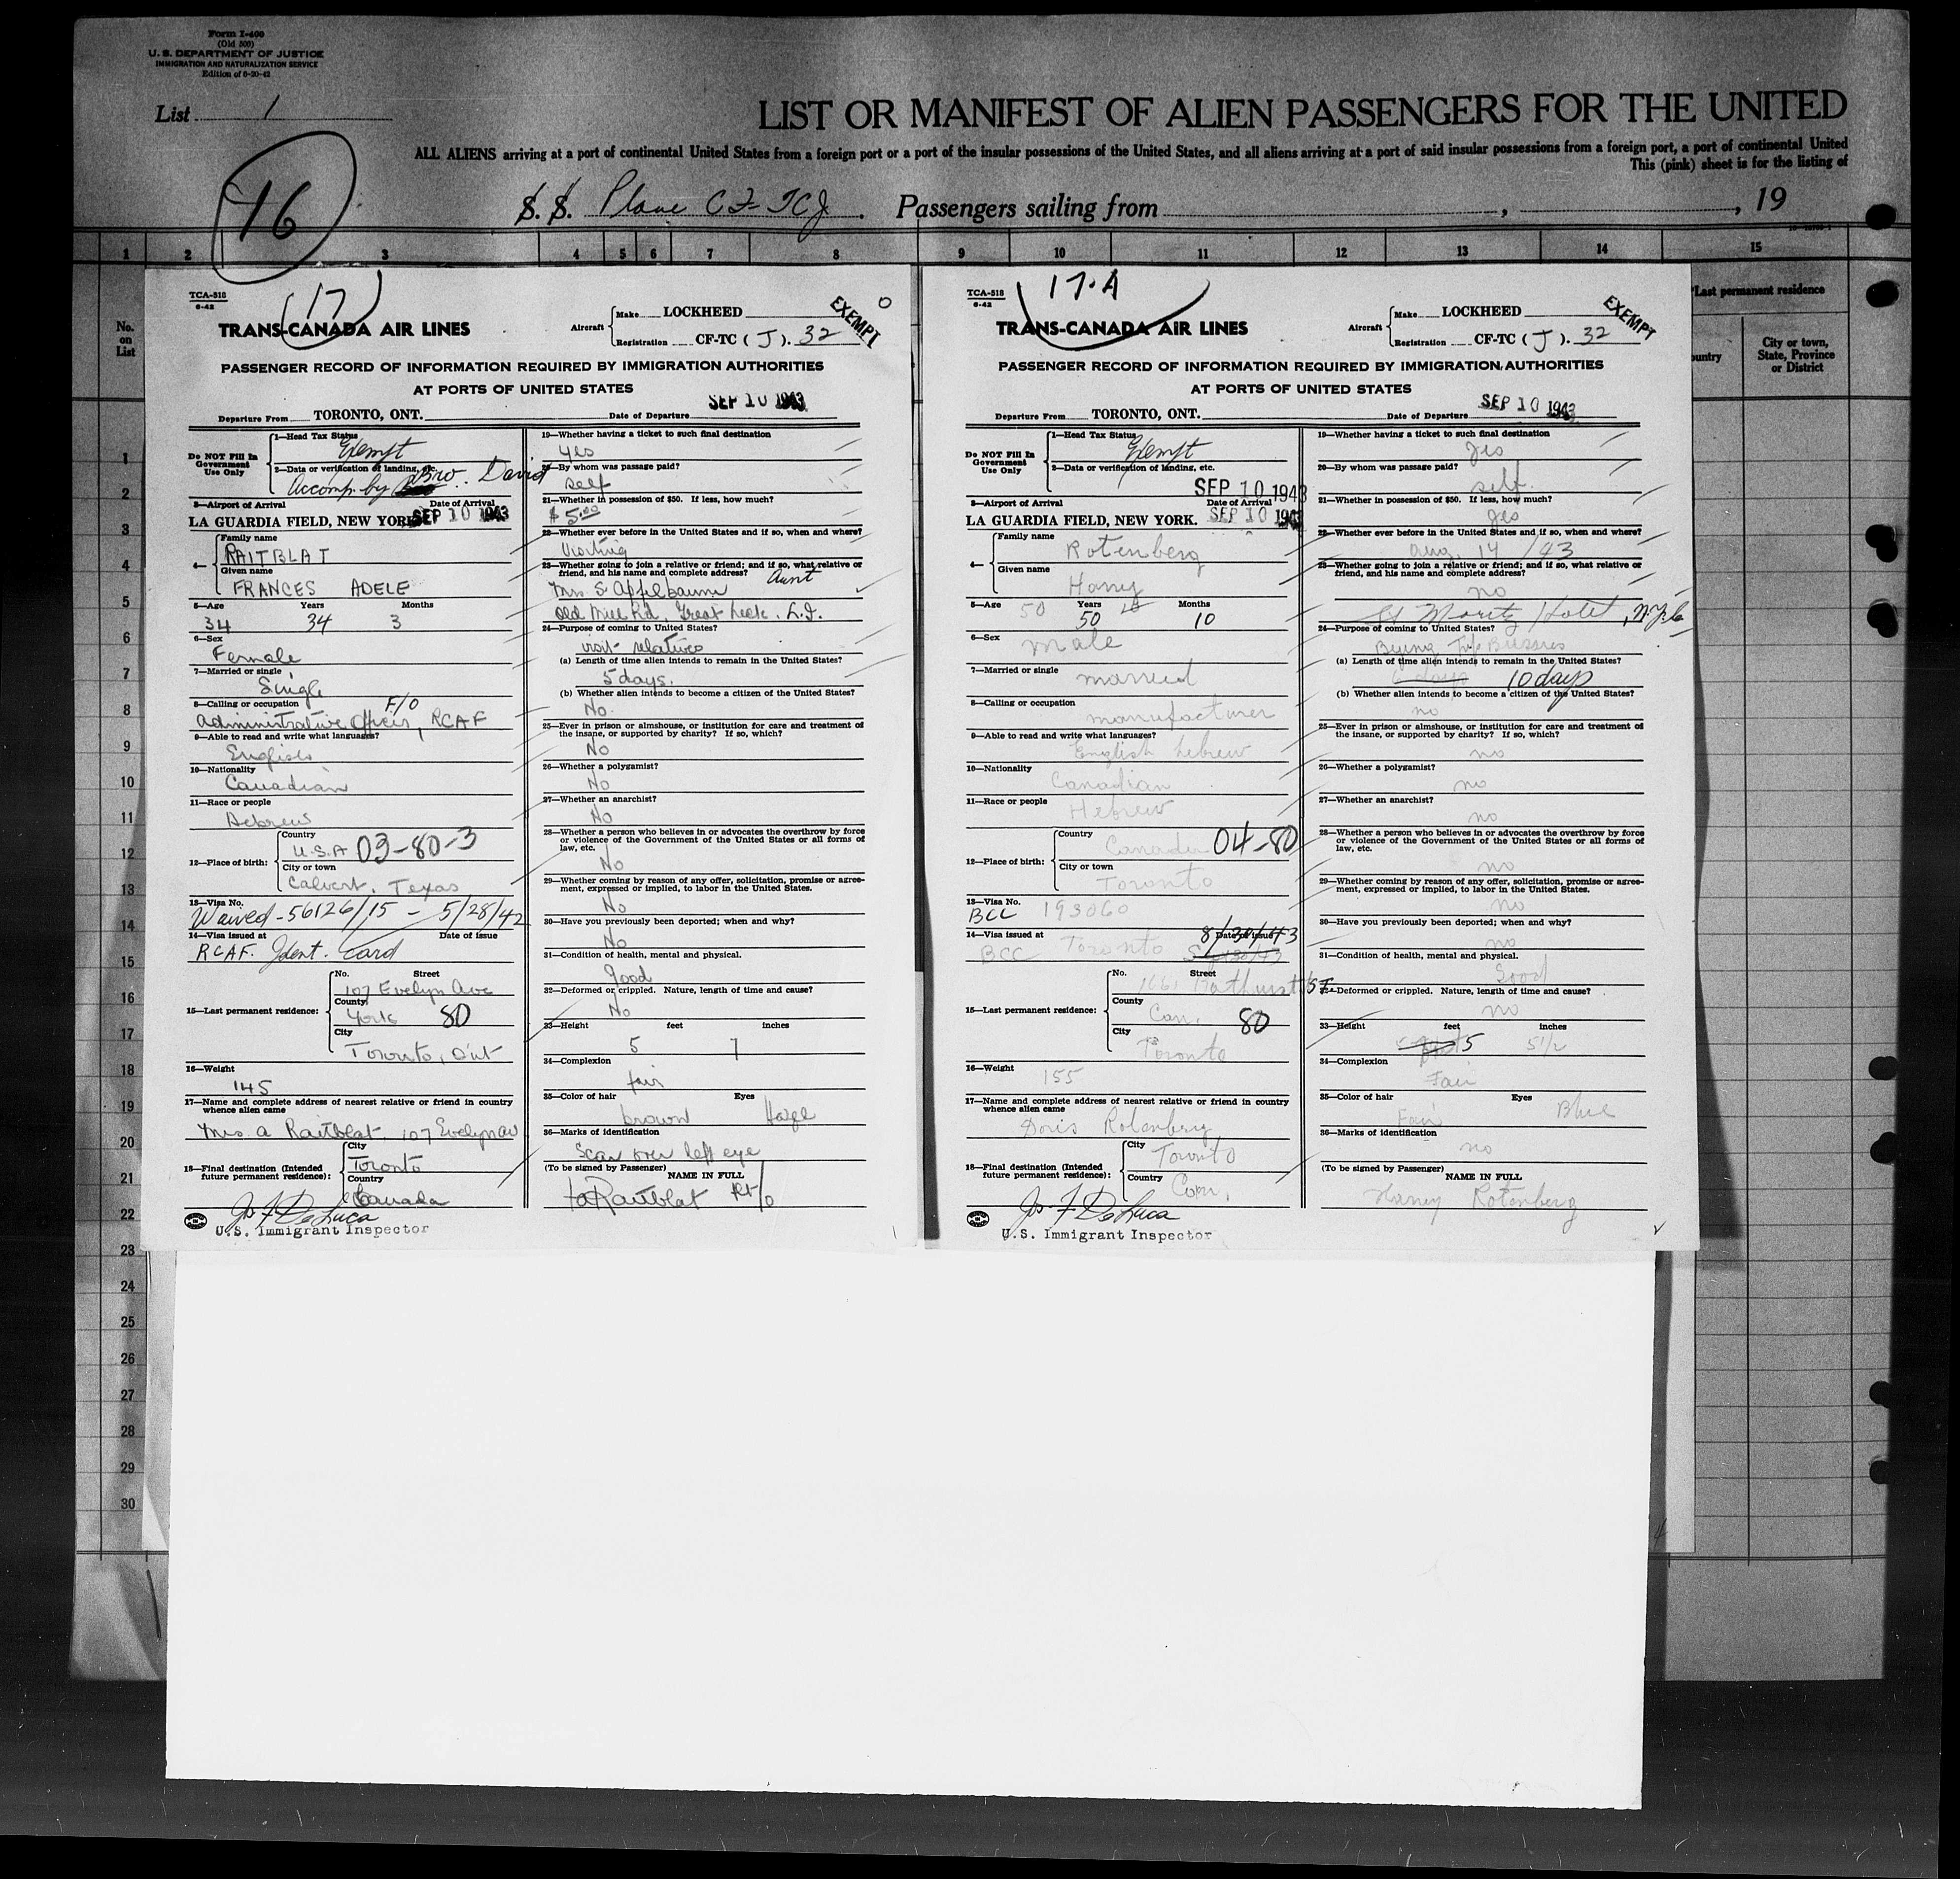 Form I-400
(Old 500)
U. S. DEPARTMENT OF JUSTICE
IMMIGRATION AND NATURALIZATION SERVICE
Edition of 6-20-42
List 1
LIST OR MANIFEST OF ALIEN PASSENGERS FOR THE UNITED
ALL ALIENS arriving at a port of continental United States from a foreign port or a port of the insular possessions of the United States, and all aliens arriving at a port of said insular possessions from a foreign port, a port of continental United
This (pink) sheet is for the listing of
16
S. S. Plane CF-TCJ Passengers sailing from , , 19
1 2 3 4 5 6 7 8 9 10 11 12 13 14 15
No. on List
Last permanent residence
City or town, State, Province or District
1
2
3
4
5
6
7
8
9
10
11
12
13
14
15
16
17
18
19
20
21
22
23
24
25
26
27
28
29
30
TCA-518
6-42
17
TRANS-CANADA AIR LINES
Aircraft
Make LOCKHEED
Registration CF-TC ( J ). 32
EXEMPT
PASSENGER RECORD OF INFORMATION REQUIRED BY IMMIGRATION AUTHORITIES
AT PORTS OF UNITED STATES
Departure From TORONTO, ONT. Date of Departure SEP 10 1943
Do NOT Fill In Government Use Only
1—Head Tax Status
Exempt
2—Data or verification of landing, etc.
Accomp. by Bro. David
3—Airport of Arrival Date of Arrival
LA GUARDIA FIELD, NEW YORK SEP 10 1943
4—
Family name
RAITBLAT
Given name
FRANCES ADELE
5—Age Years Months
34 34 3
6—Sex
Female
7—Married or single
Single
8—Calling or occupation F/O
Administrative Officer, RCAF
9—Able to read and write what languages?
English
10—Nationality
Canadian
11—Race or people
Hebrew
12—Place of birth:
Country
U.S.A 03-80-3
City or town
Calvert, Texas
13—Visa No.
Waived - 56126/15 - 5/28/42
14—Visa issued at Date of issue
RCAF. Ident. Card
15—Last permanent residence:
No. Street
107 Evelyn Ave
County
York 80
City
Toronto, Ont
16—Weight
145
17—Name and complete address of nearest relative or friend in country whence alien came
Mrs. A Raitblat, 107 Evelyn Av
18—Final destination (Intended future permanent residence):
City
Toronto
Country
Canada
Jos F De Luca
U.S. Immigrant Inspector
19—Whether having a ticket to such final destination
yes
20—By whom was passage paid?
self
21—Whether in possession of $50. If less, how much?
$ 5.00
22—Whether ever before in the United States and if so, when and where?
Visiting
23—Whether going to join a relative or friend; and if so, what relative or friend, and his name and complete address? Aunt
Mrs. S. Applebaum
Old Mill Rd, Great Neck, L.I.
24—Purpose of coming to United States?
visit relatives
(a) Length of time alien intends to remain in the United States?
5 days.
(b) Whether alien intends to become a citizen of the United States?
No.
25—Ever in prison or almshouse, or institution for care and treatment of the insane, or supported by charity? If so, which?
No
26—Whether a polygamist?
No
27—Whether an anarchist?
No
28—Whether a person who believes in or advocates the overthrow by force or violence of the Government of the United States or all forms of law, etc.
No
29—Whether coming by reason of any offer, solicitation, promise or agreement, expressed or implied, to labor in the United States.
No
30—Have you previously been deported; when and why?
No
31—Condition of health, mental and physical.
good
32—Deformed or crippled. Nature, length of time and cause?
No
33—Height feet inches
5 7
34—Complexion
fair
35—Color of hair Eyes
brown Hazel
36—Marks of identification
Scar over left eye
(To be signed by Passenger) NAME IN FULL
Raitblat
TCA-518
6-42
17-A
TRANS-CANADA AIR LINES
Aircraft
Make LOCKHEED
Registration CF-TC ( J ). 32
EXEMPT
PASSENGER RECORD OF INFORMATION REQUIRED BY IMMIGRATION AUTHORITIES
AT PORTS OF UNITED STATES
Departure From TORONTO, ONT. Date of Departure SEP 10 1943
Do NOT Fill In Government Use Only
1—Head Tax Status
Exempt
2—Data or verification of landing, etc.
SEP 10 1943
3—Airport of Arrival Date of Arrival
LA GUARDIA FIELD, NEW YORK. SEP 10 1943
4—
Family name
Rotenberg
Given name
Harry
5—Age Years Months
50 50 10
6—Sex
male
7—Married or single
married
8—Calling or occupation
manufacturer
9—Able to read and write what languages?
English hebrew
10—Nationality
Canadian
11—Race or people
Hebrew
12—Place of birth:
Country
Canada 04-80
City or town
Toronto
13—Visa No.
BCC 193060
14—Visa issued at Date of issue
BCC Toronto 8/30/43
15—Last permanent residence:
No. Street
Bathurst St
County
Can. 80
City
Toronto
16—Weight
155
17—Name and complete address of nearest relative or friend in country whence alien came
Doris Rotenberg
18—Final destination (Intended future permanent residence):
City
Toronto
Country
Can.
Jos F De Luca
U.S. Immigrant Inspector
19—Whether having a ticket to such final destination
yes
20—By whom was passage paid?
self.
21—Whether in possession of $50. If less, how much?
yes
22—Whether ever before in the United States and if so, when and where?
Aug. 14 / 43
23—Whether going to join a relative or friend; and if so, what relative or friend, and his name and complete address?
no
St Moritz Hotel, N.Y.C.
24—Purpose of coming to United States?
(a) Length of time alien intends to remain in the United States?
10 days
(b) Whether alien intends to become a citizen of the United States?
no
25—Ever in prison or almshouse, or institution for care and treatment of the insane, or supported by charity? If so, which?
no
26—Whether a polygamist?
no
27—Whether an anarchist?
no
28—Whether a person who believes in or advocates the overthrow by force or violence of the Government of the United States or all forms of law, etc.
no
29—Whether coming by reason of any offer, solicitation, promise or agreement, expressed or implied, to labor in the United States.
no
30—Have you previously been deported; when and why?
no
31—Condition of health, mental and physical.
Good
32—Deformed or crippled. Nature, length of time and cause?
no
33—Height feet inches
5 5 1/2
34—Complexion
Fair
35—Color of hair Eyes
Fair Blue
36—Marks of identification
no
(To be signed by Passenger) NAME IN FULL
Harry Rotenberg